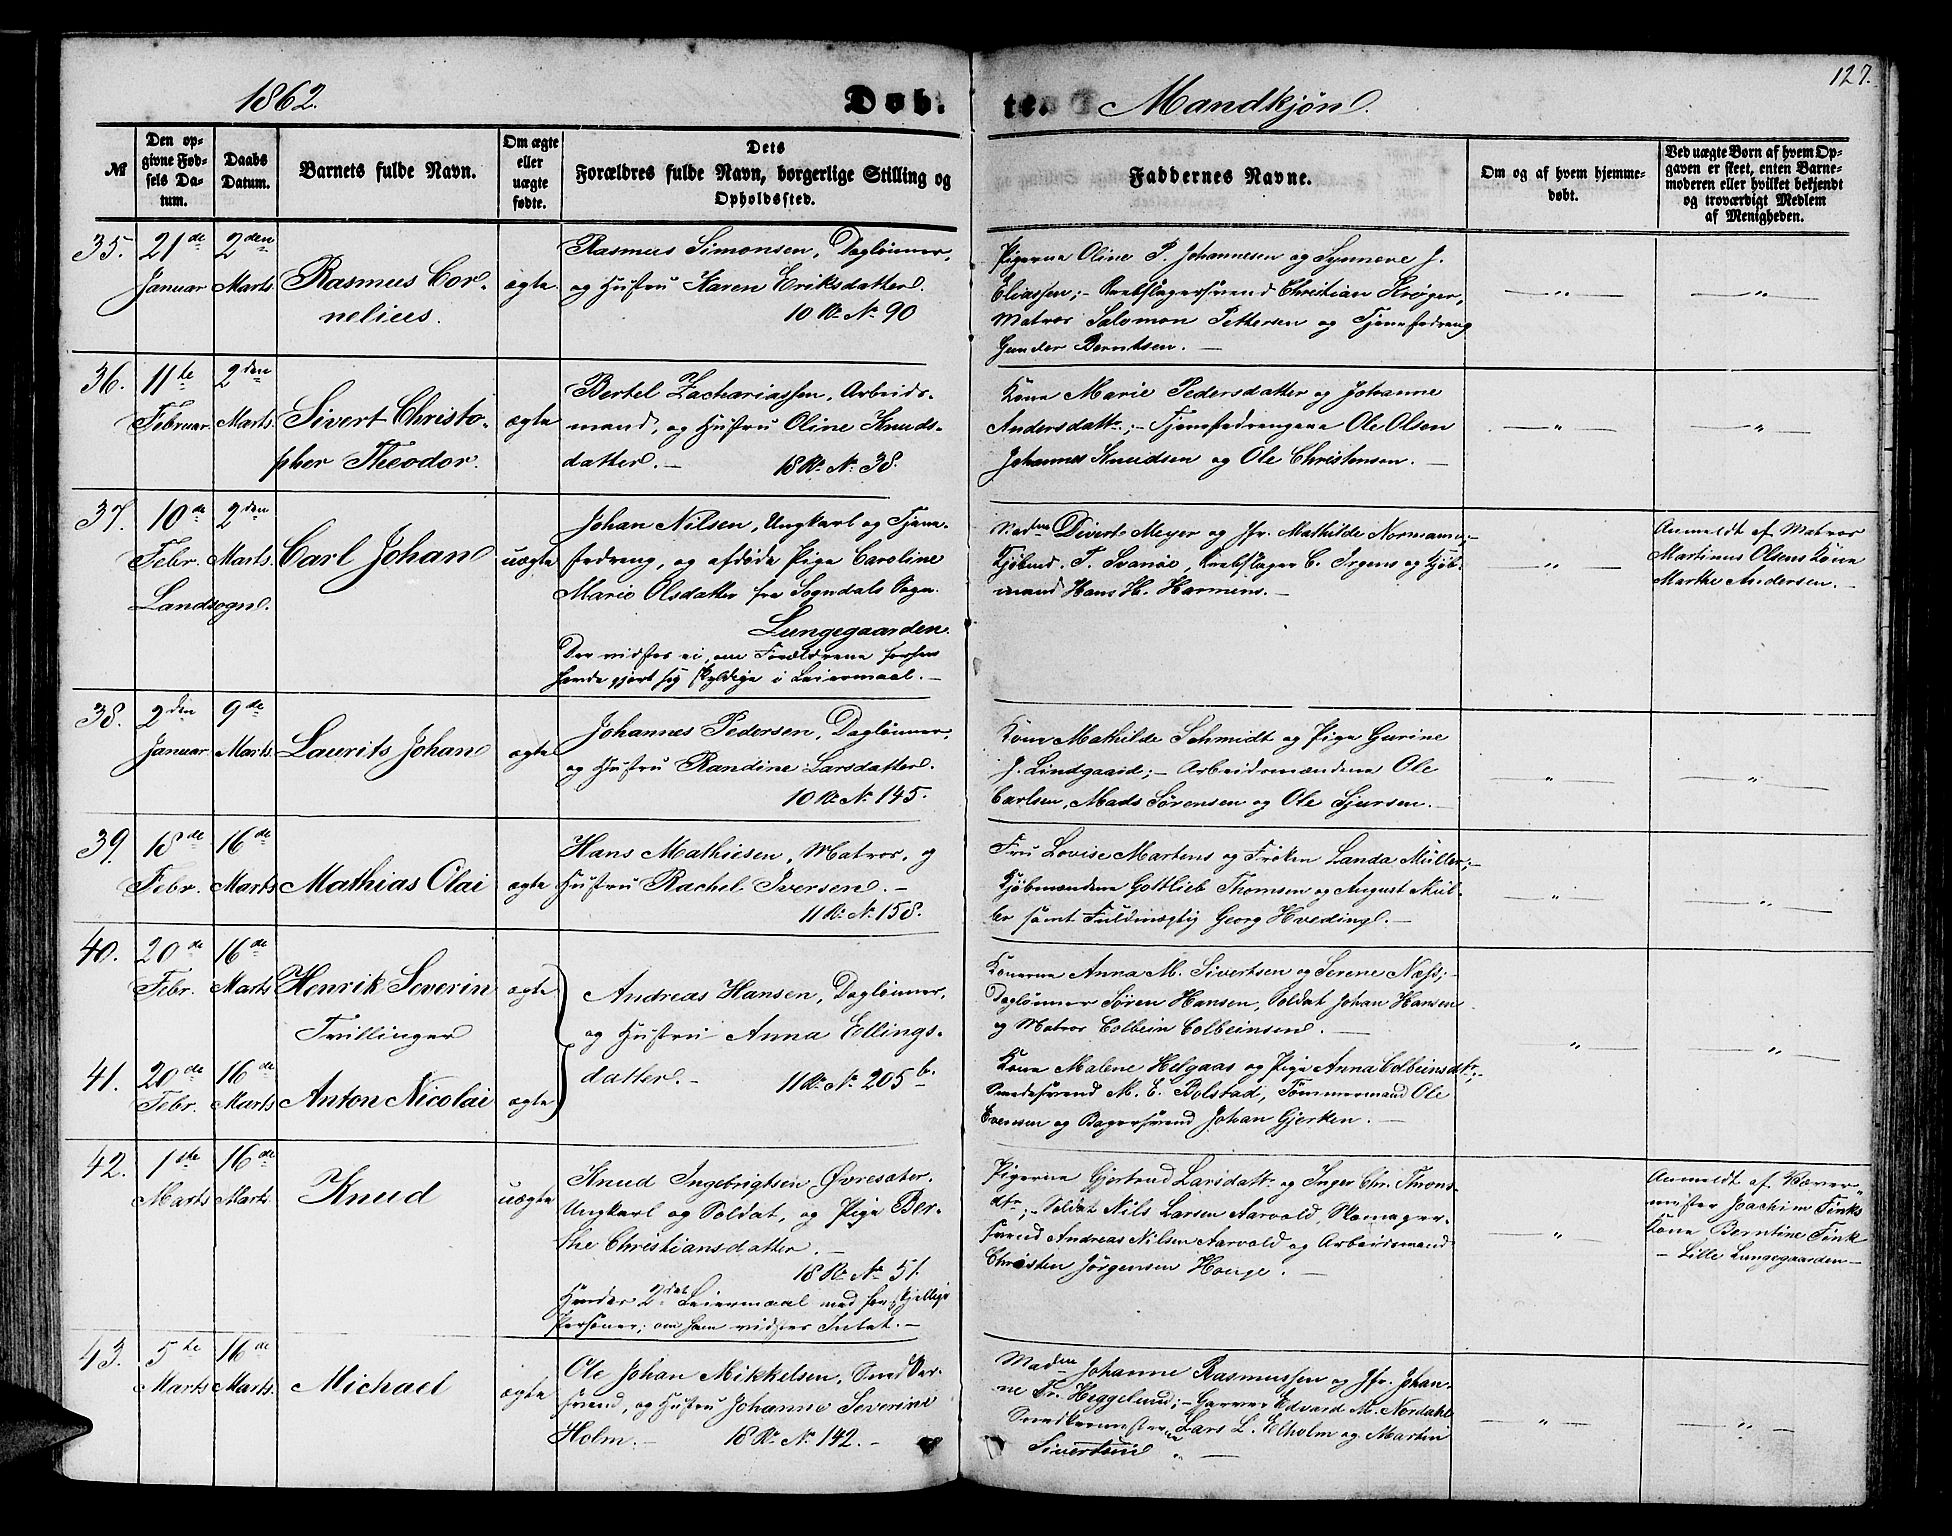 1862.
Døb-
te.
Mandkjøn.
127.
№
Den op-
givne Fød-
sels Da-
tum.
Daabs
Datum.
Barnets fulde Navn.
Om ægte
eller
uægte
fødte.
Dets
Forældres fulde Navn, borgerlige Stilling og
Opholdssted.
Faddernes Navne.
Om og af hvem hjemme-
døbt.
Ved uægte Børn af hvem Op-
gaven er skeet, enten Barne-
moderen eller hvilket bekjendt
og troværdigt Medlem
af Menigheden.
35. 21de Januar
2den Marts
Rasmus Cor-
nelius.
ægte
Rasmus Simonsen, Daglønner,
og Hustru Karen Eriksdatter.
10 R. N. 90
Pigerne Oline P. Johannesen og Synneve J.
Eliassen; - Rebslagersvend Christian Krøger,
Matros Salomon Pettersen og Tjenestedreng
Gunder Berntsen. -
36. 11te Februar
2den Marts.
Sivert Christo-
pher Theodor.
ægte
Bertel Zachariassen, Arbeids-
mand, og Hustru Oline Knuds-
datter. - 18 R. N. 38.
Kone Marie Pedersdatter og Johanne
Andersdatt.; - Tjenestedrengene Ole Olsen
Johannes Knudsen og Ole Christensen. -
37. 10de Febr.
Landsogn.
2den Marts.
Carl Johan
uægte
Johan Nilsen, Ungkarl og Tjene-
stedreng, og afdøde Pige Caroline
Marie Olsdatter fra Sogndals Sogn.
Lungegaarden.
Der vidstes ei, om Forældrene forhen
havde gjort sig skyldige i Leiermaal. -
Madme Divert Meyer og Jfr. Mathilde Normann; -
Kjøbmd. T. Svanøe, Rebslager C. Irgens og Kjøb-
mand Hans H. Harmens. -
Anmeldt af Matros
Martinus Olsens Kone
Marthe Andersen. -
38. 2den Januar
9de Marts.
Laurits Johan
ægte
Johannes Pedersen, Daglønner,
og Hustru Randine Larsdatter.
10 R. N. 145.
Kone Mathilde Schmidt og Pige Gurine
J. Lindgaard; - Arbeidsmændene Ole
Carlsen, Mads Sørensen og Ole Sjursen. -
39. 18de Febr.
16de Marts
Mathias Olai
ægte
Hans Mathiesen, Matros, og
Hustru Rachel Iversen. -
11 R. N. 158.
Fru Lovise Martens og Frøken Landa Müller; -
Kjøbmændene Gottlieb Thomsen og August Mül-
ler samt Fuldmægtig Georg Hveding. -
40. 20de Febr.
16de Marts
Henrik Severin
Tvillinger
ægte
Andreas Hansen, Daglønner,
og Hustru Anna Ellings-
datter. - 11 R. N. 205 b.
Konerne Anna M. Sivertsen og Serene Næss; -
Daglønner Søren Hansen, Soldat Johan Hansen
og Matros Colbein Colbeinsen. -
41. 20de Febr.
16de Marts
Anton Nicolai
ægte
Kone Malene Helgaas og Pige Anna Colbeinsdtr.; -
Smedesvend M. E. Bolstad, Tømmermand Ole
Evensen og Bagersvend Johan Gjerken. -
42. 1ste Marts
16de Marts.
Knud
uægte
Knud Ingebrigtsen Øvresæter.
Ungkarl og Soldat, og Pige Ber-
the Christiansdatter. -
18 R. N. 51.
Hendes 2det Leiermaal med forskjellige
Personer; om ham vidstes Intet. -
Pigerne Gjertrud Larsdatt. og Inger Chr. Throns-
dtr.; - Soldat Nils Larsen Aarvold, Skomager-
svend Andreas Nilsen Aarvold og Arbeidsmand
Christen Jørgensen Houge. -
Anmeldt af Væver-
mester Joachim Finks
Kone Berntine Fink
- Lille Lungegaarden -
43. 5te Marts
16de Marts.
Michael
ægte
Ole Johan Mikkelsen, Snedker-
svend, og Hustru Johanne Severine
Holm. - 18 R. N. 142. -
Madme Johanne Rasmussen og Jfr. Johan-
ne Fr. Heggelund; - Garver Edvard M. Nordahl
Snedkermester Lars L. Elholm og Martin
Sivertsen -